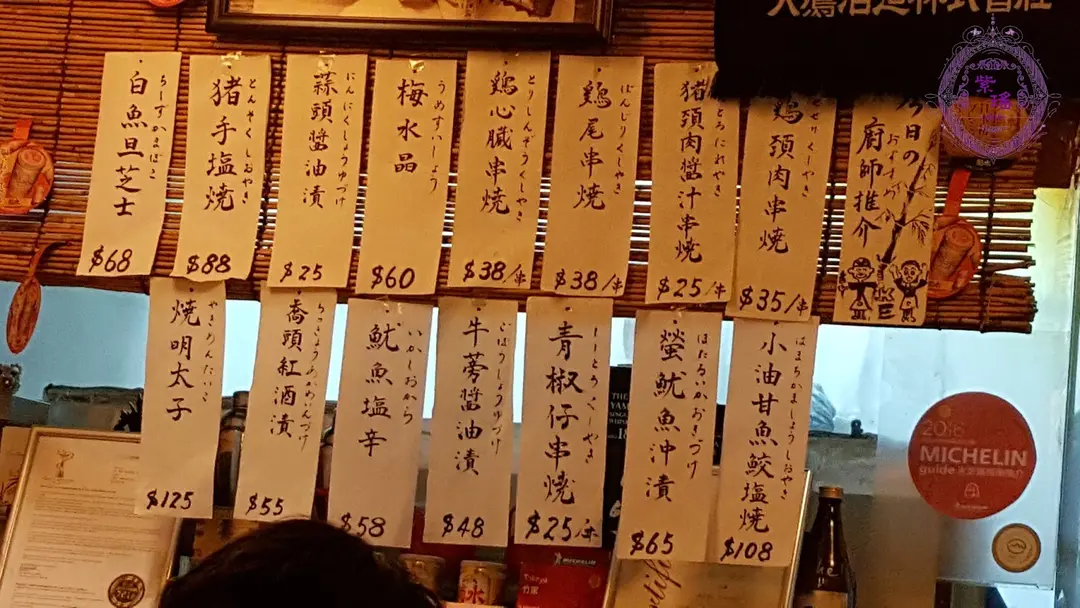 大鷹酒造株式會社
紫瑤
今日の
おすすめ
廚師推介
せせりくしやき
鶏頚肉串燒
$35/串
とろにれやき
猪頭肉醬汁串燒
$25/串
ぼんじりくしやき
鶏尾串燒
$38/串
とりしんぞうくしやき
鶏心臓串燒
$38/串
うめすいしょう
梅水晶
$60
にんにくしょうゆづけ
蒜頭醬油漬
$25
とんそく しおやき
猪手塩燒
$88
ちーずかまぼこ
白魚旦芝士
$68
はまちかましょうしおやき
小油甘魚鮫塩燒
$108
ほたるいかおきづけ
螢魷魚沖漬
$65
ししとうくしやき
青椒仔串燒
$25/串
ごぼうしょうゆづけ
牛蒡醬油漬
$48
いかしおから
魷魚塩辛
$58
らっきょうめかわいんづけ
喬頭紅酒漬
$55
やきめんたいこ
燒明太子
$125
MICHELIN
guide